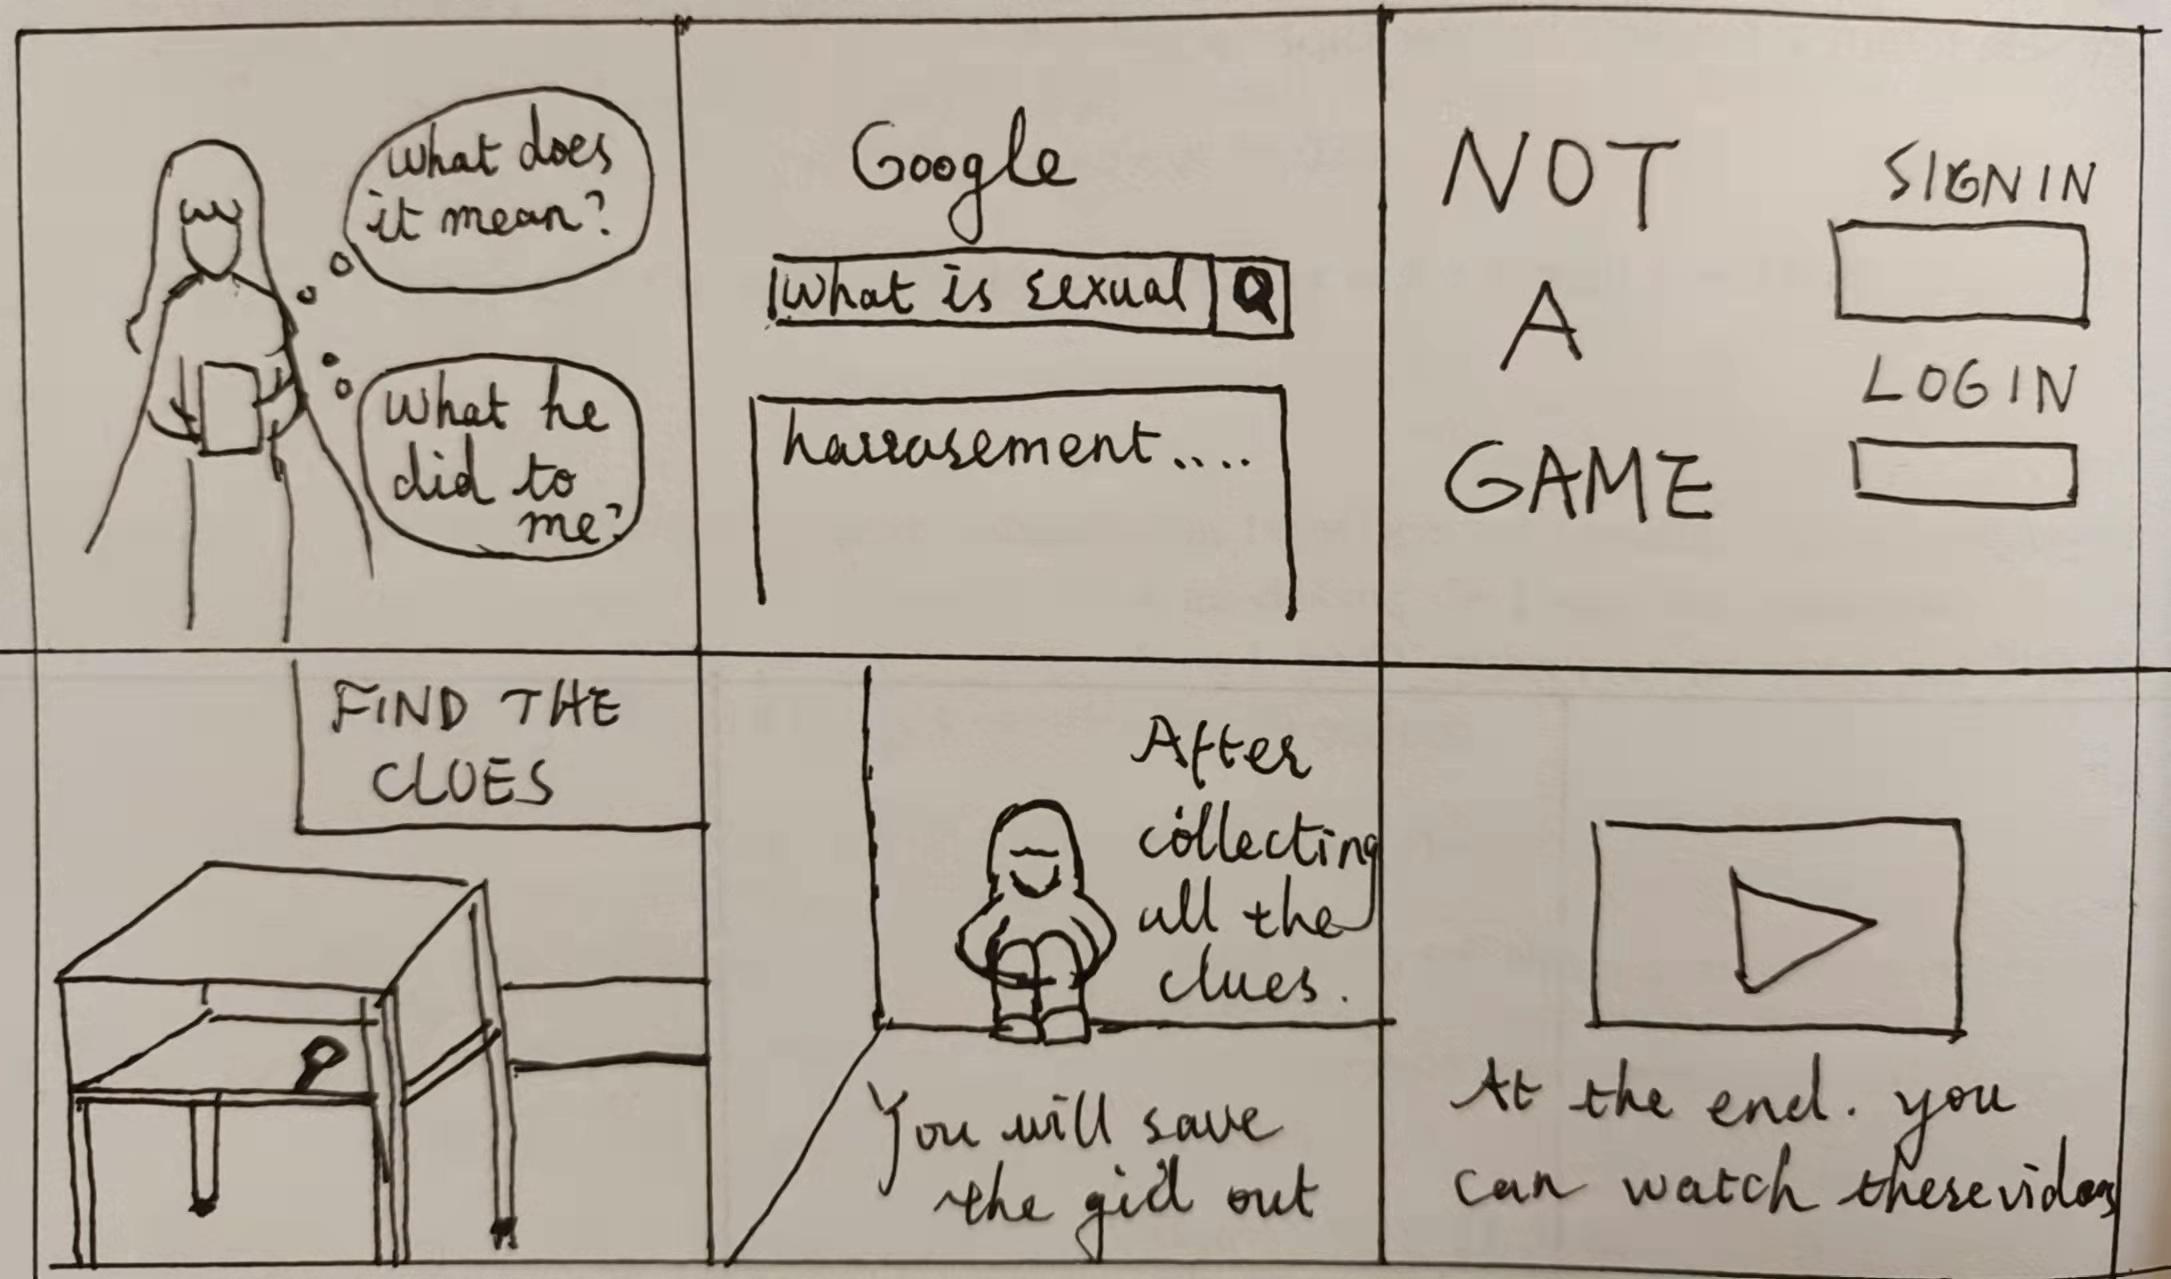 What does
it mean?
What he
did to
me?
Google
What is sexual
harrasement....
NOT
A
GAME
SIGN IN
LOGIN
FIND THE
CLUES
After
collecting
all the
clues.
You will save
the girl out
At the end. you
can watch these videos